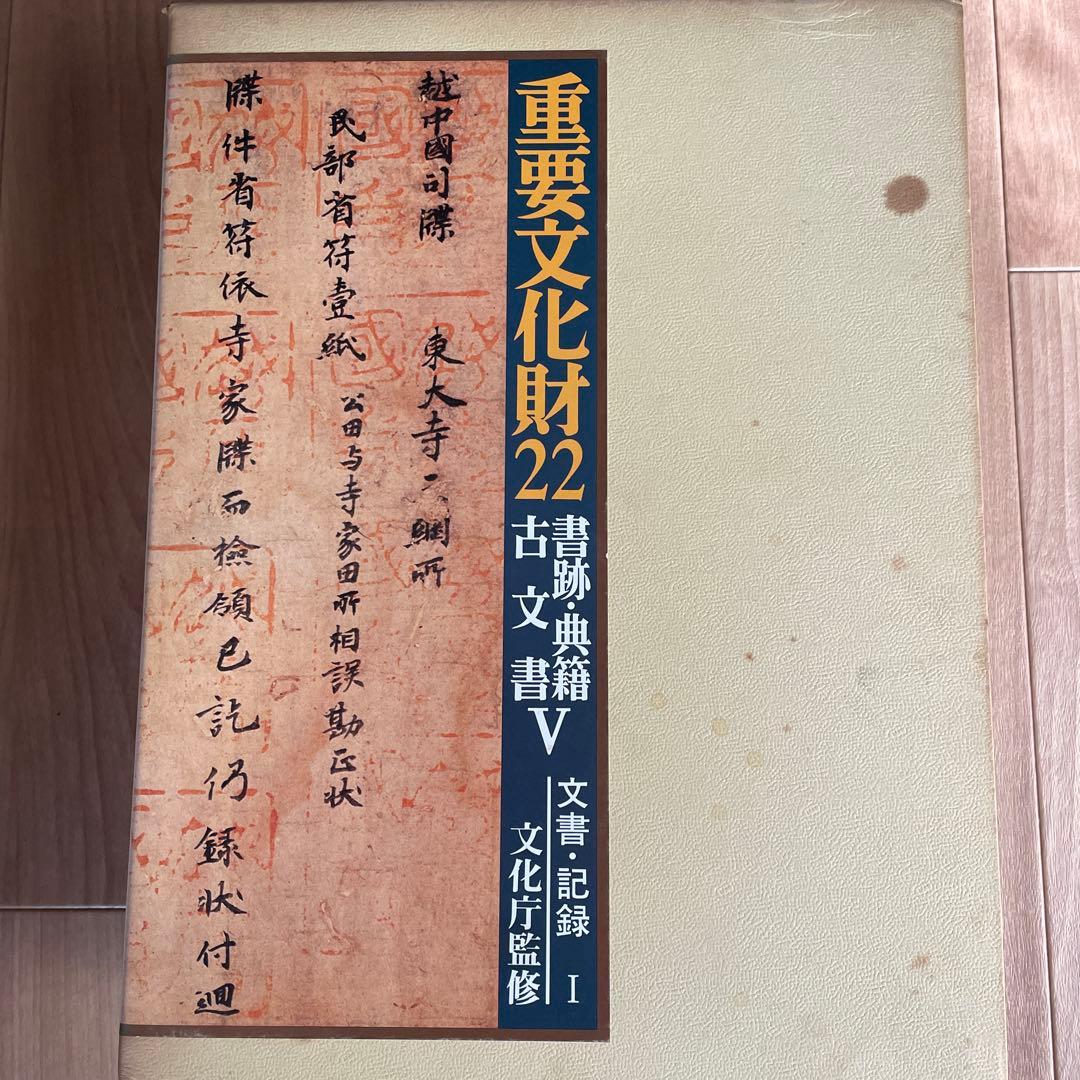 重要文化財22
書跡・典籍
古文書
V
文書・記録 I
文化庁監修
越中國司牒 東大寺 綱所
民部省符壹紙 公田与寺家田所相誤勘正状
牒件省符依寺家牒而檢領已訖仍録状付廻